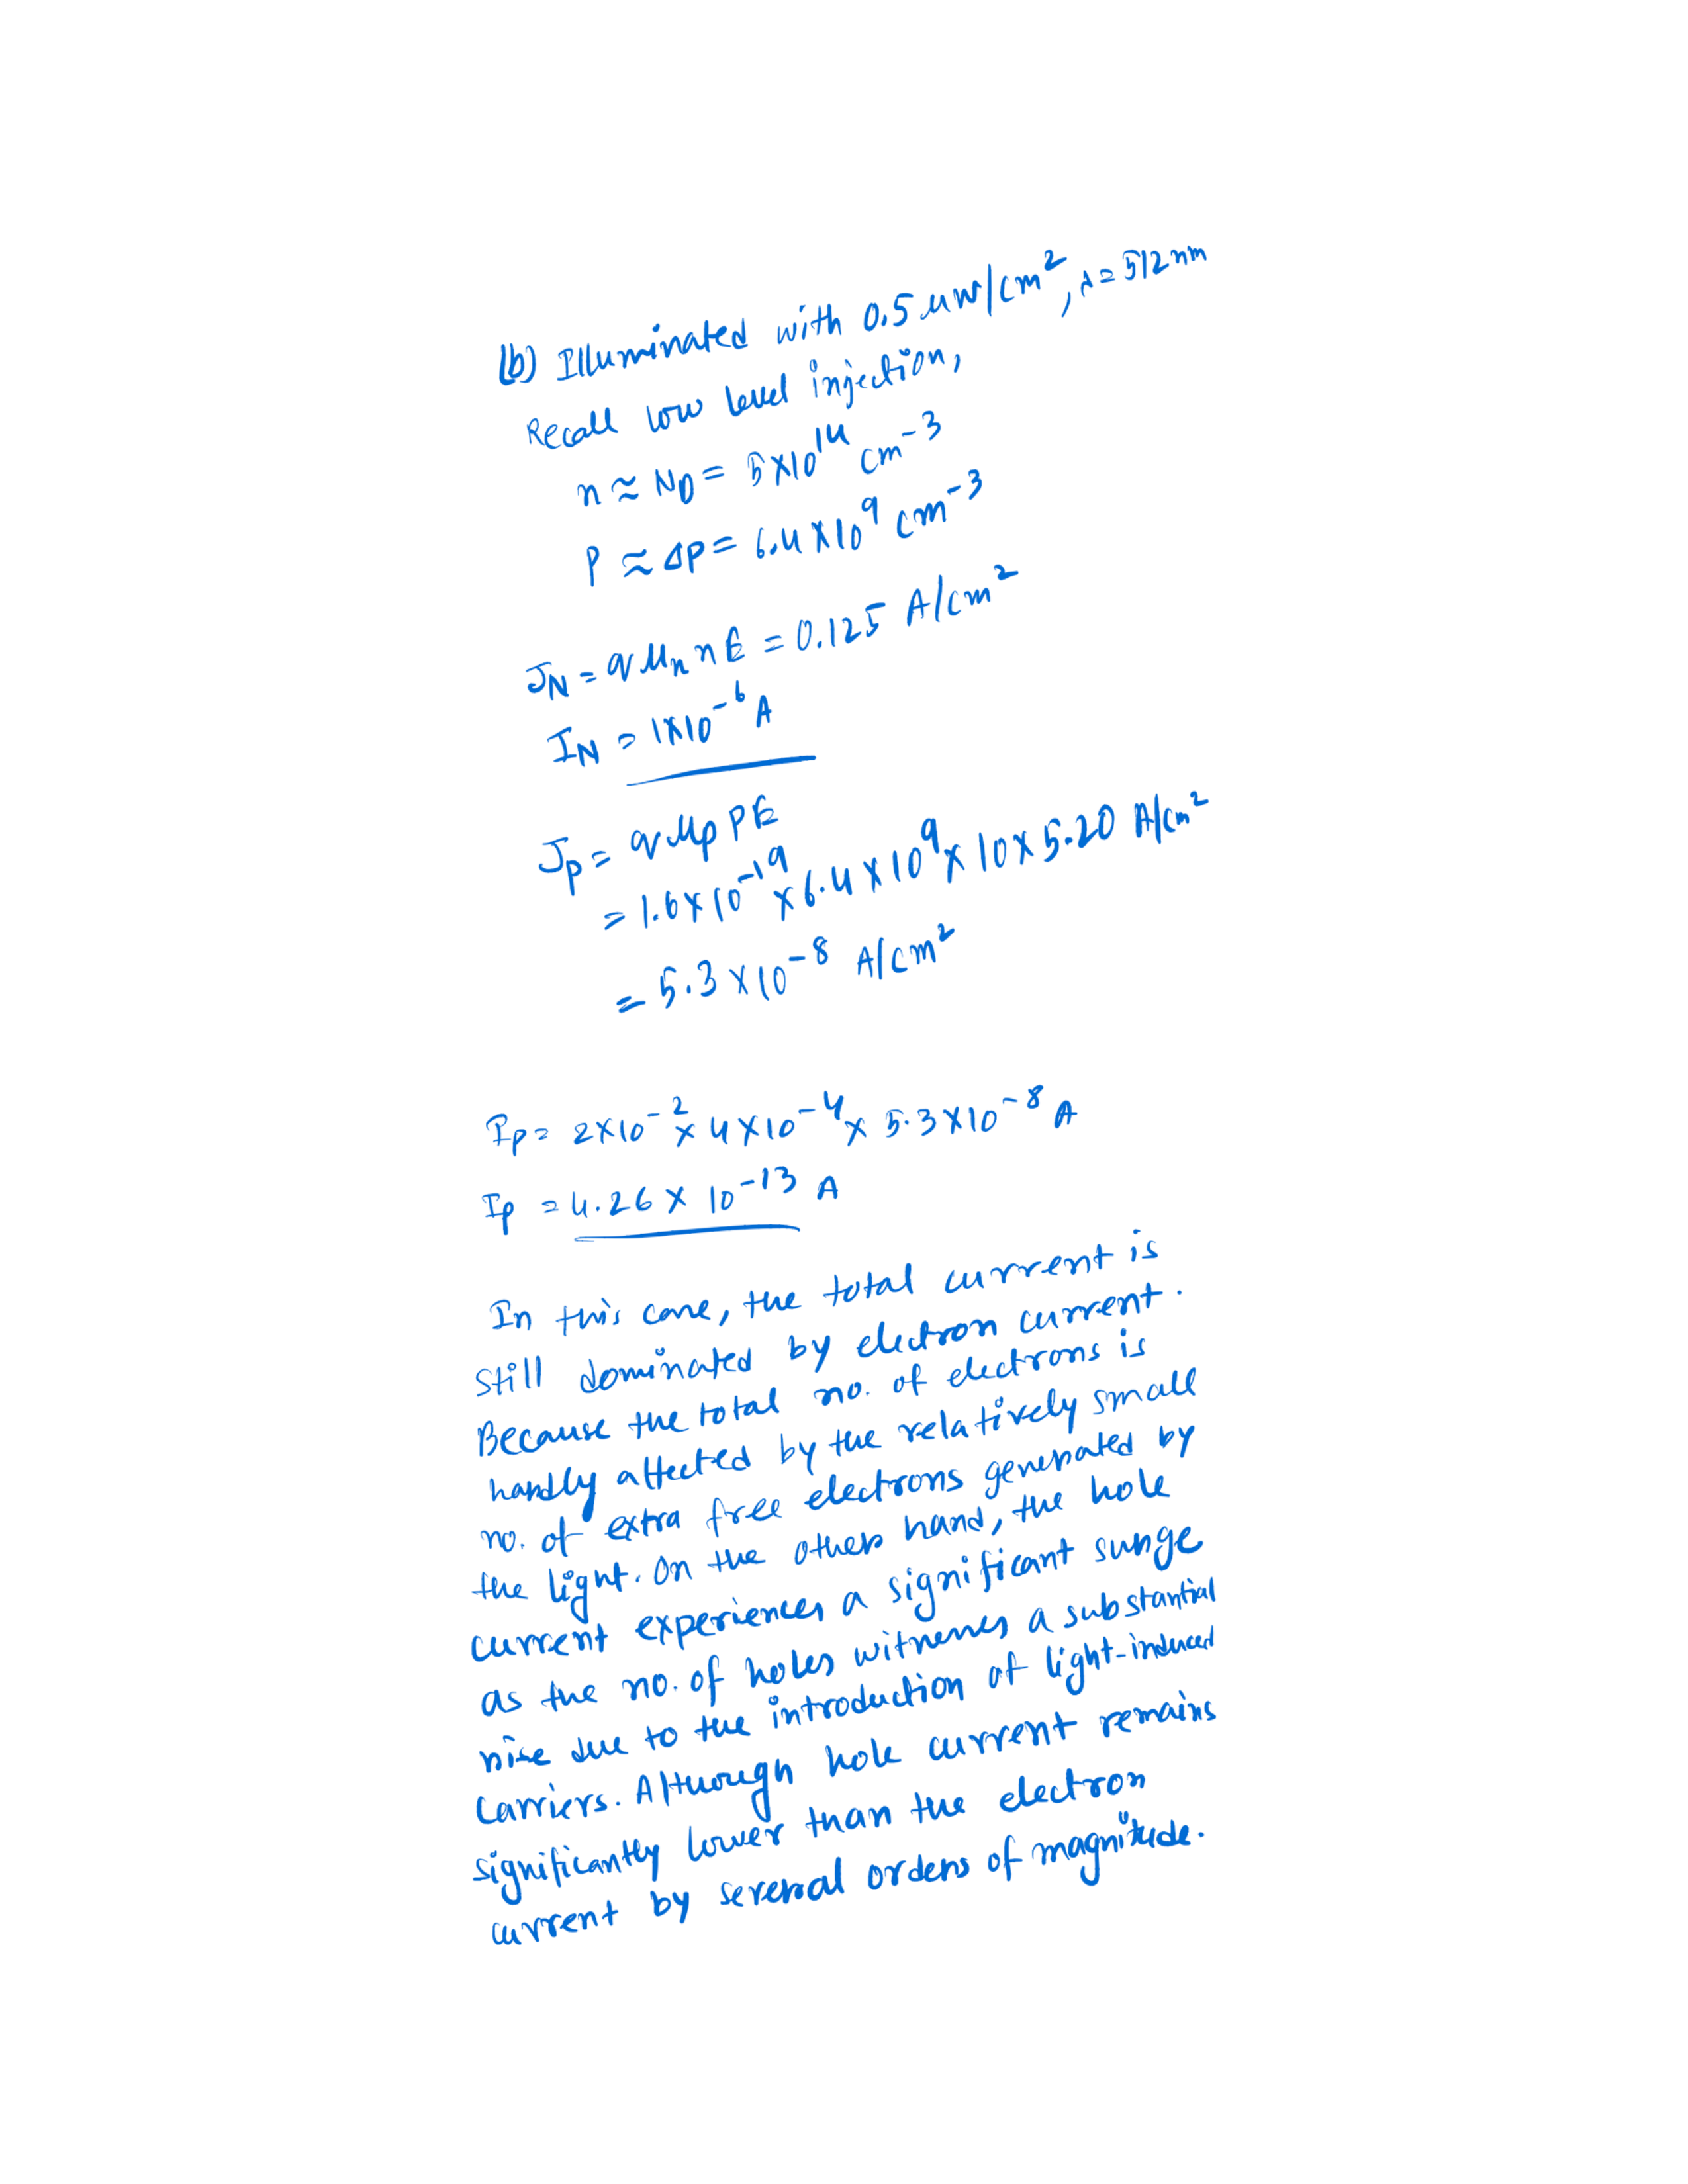 (b) Illuminated with 0.5 μW/cm², λ = 512 nm
Recall low level injection,
n ≈ ND = 5×10¹⁴ cm⁻³
P ≈ ΔP = 6.4×10⁹ cm⁻³
JN = qμn n E = 0.125 A/cm²
IN = 1×10⁻⁶ A
Jp = qμp P E
= 1.6×10⁻¹⁹ × 6.4×10⁹ × 10 × 5.20 A/cm²
= 5.3×10⁻⁸ A/cm²
Ip = 2×10⁻² × 4×10⁻⁴ × 5.3×10⁻⁸ A
Ip = 4.26 × 10⁻¹³ A
In this case, the total current is
still dominated by electron current.
Because the total no. of electrons is
hardly affected by the relatively small
no. of extra free electrons generated by
the light. On the other hand, the hole
current experiences a significant surge
as the no. of holes witnesses a substantial
rise due to the introduction of light-induced
carriers. Although hole current remains
significantly lower than the electron
current by several orders of magnitude.